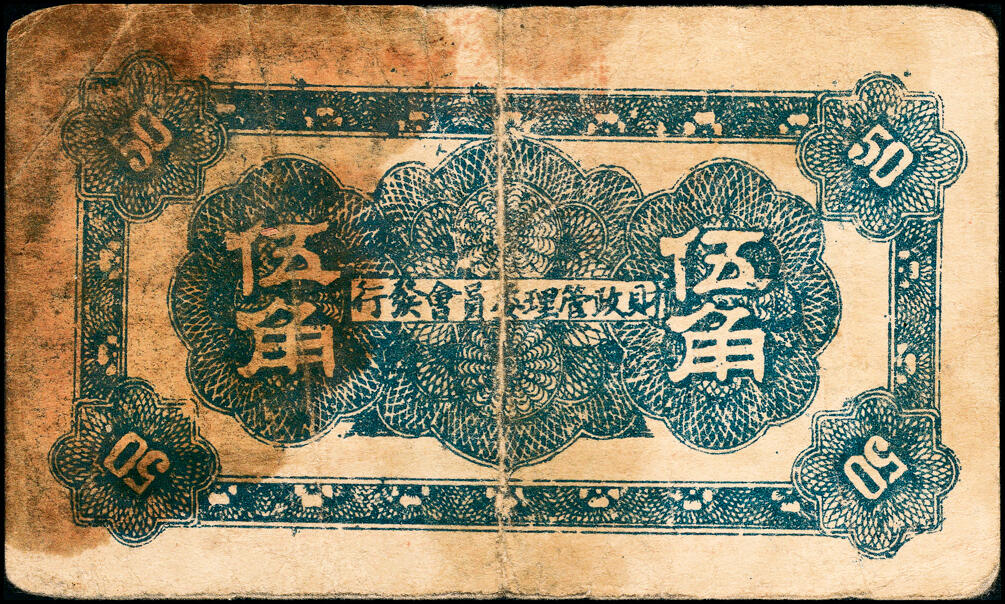 50
50
伍角
伍角
財政管理委員會發行
50
50